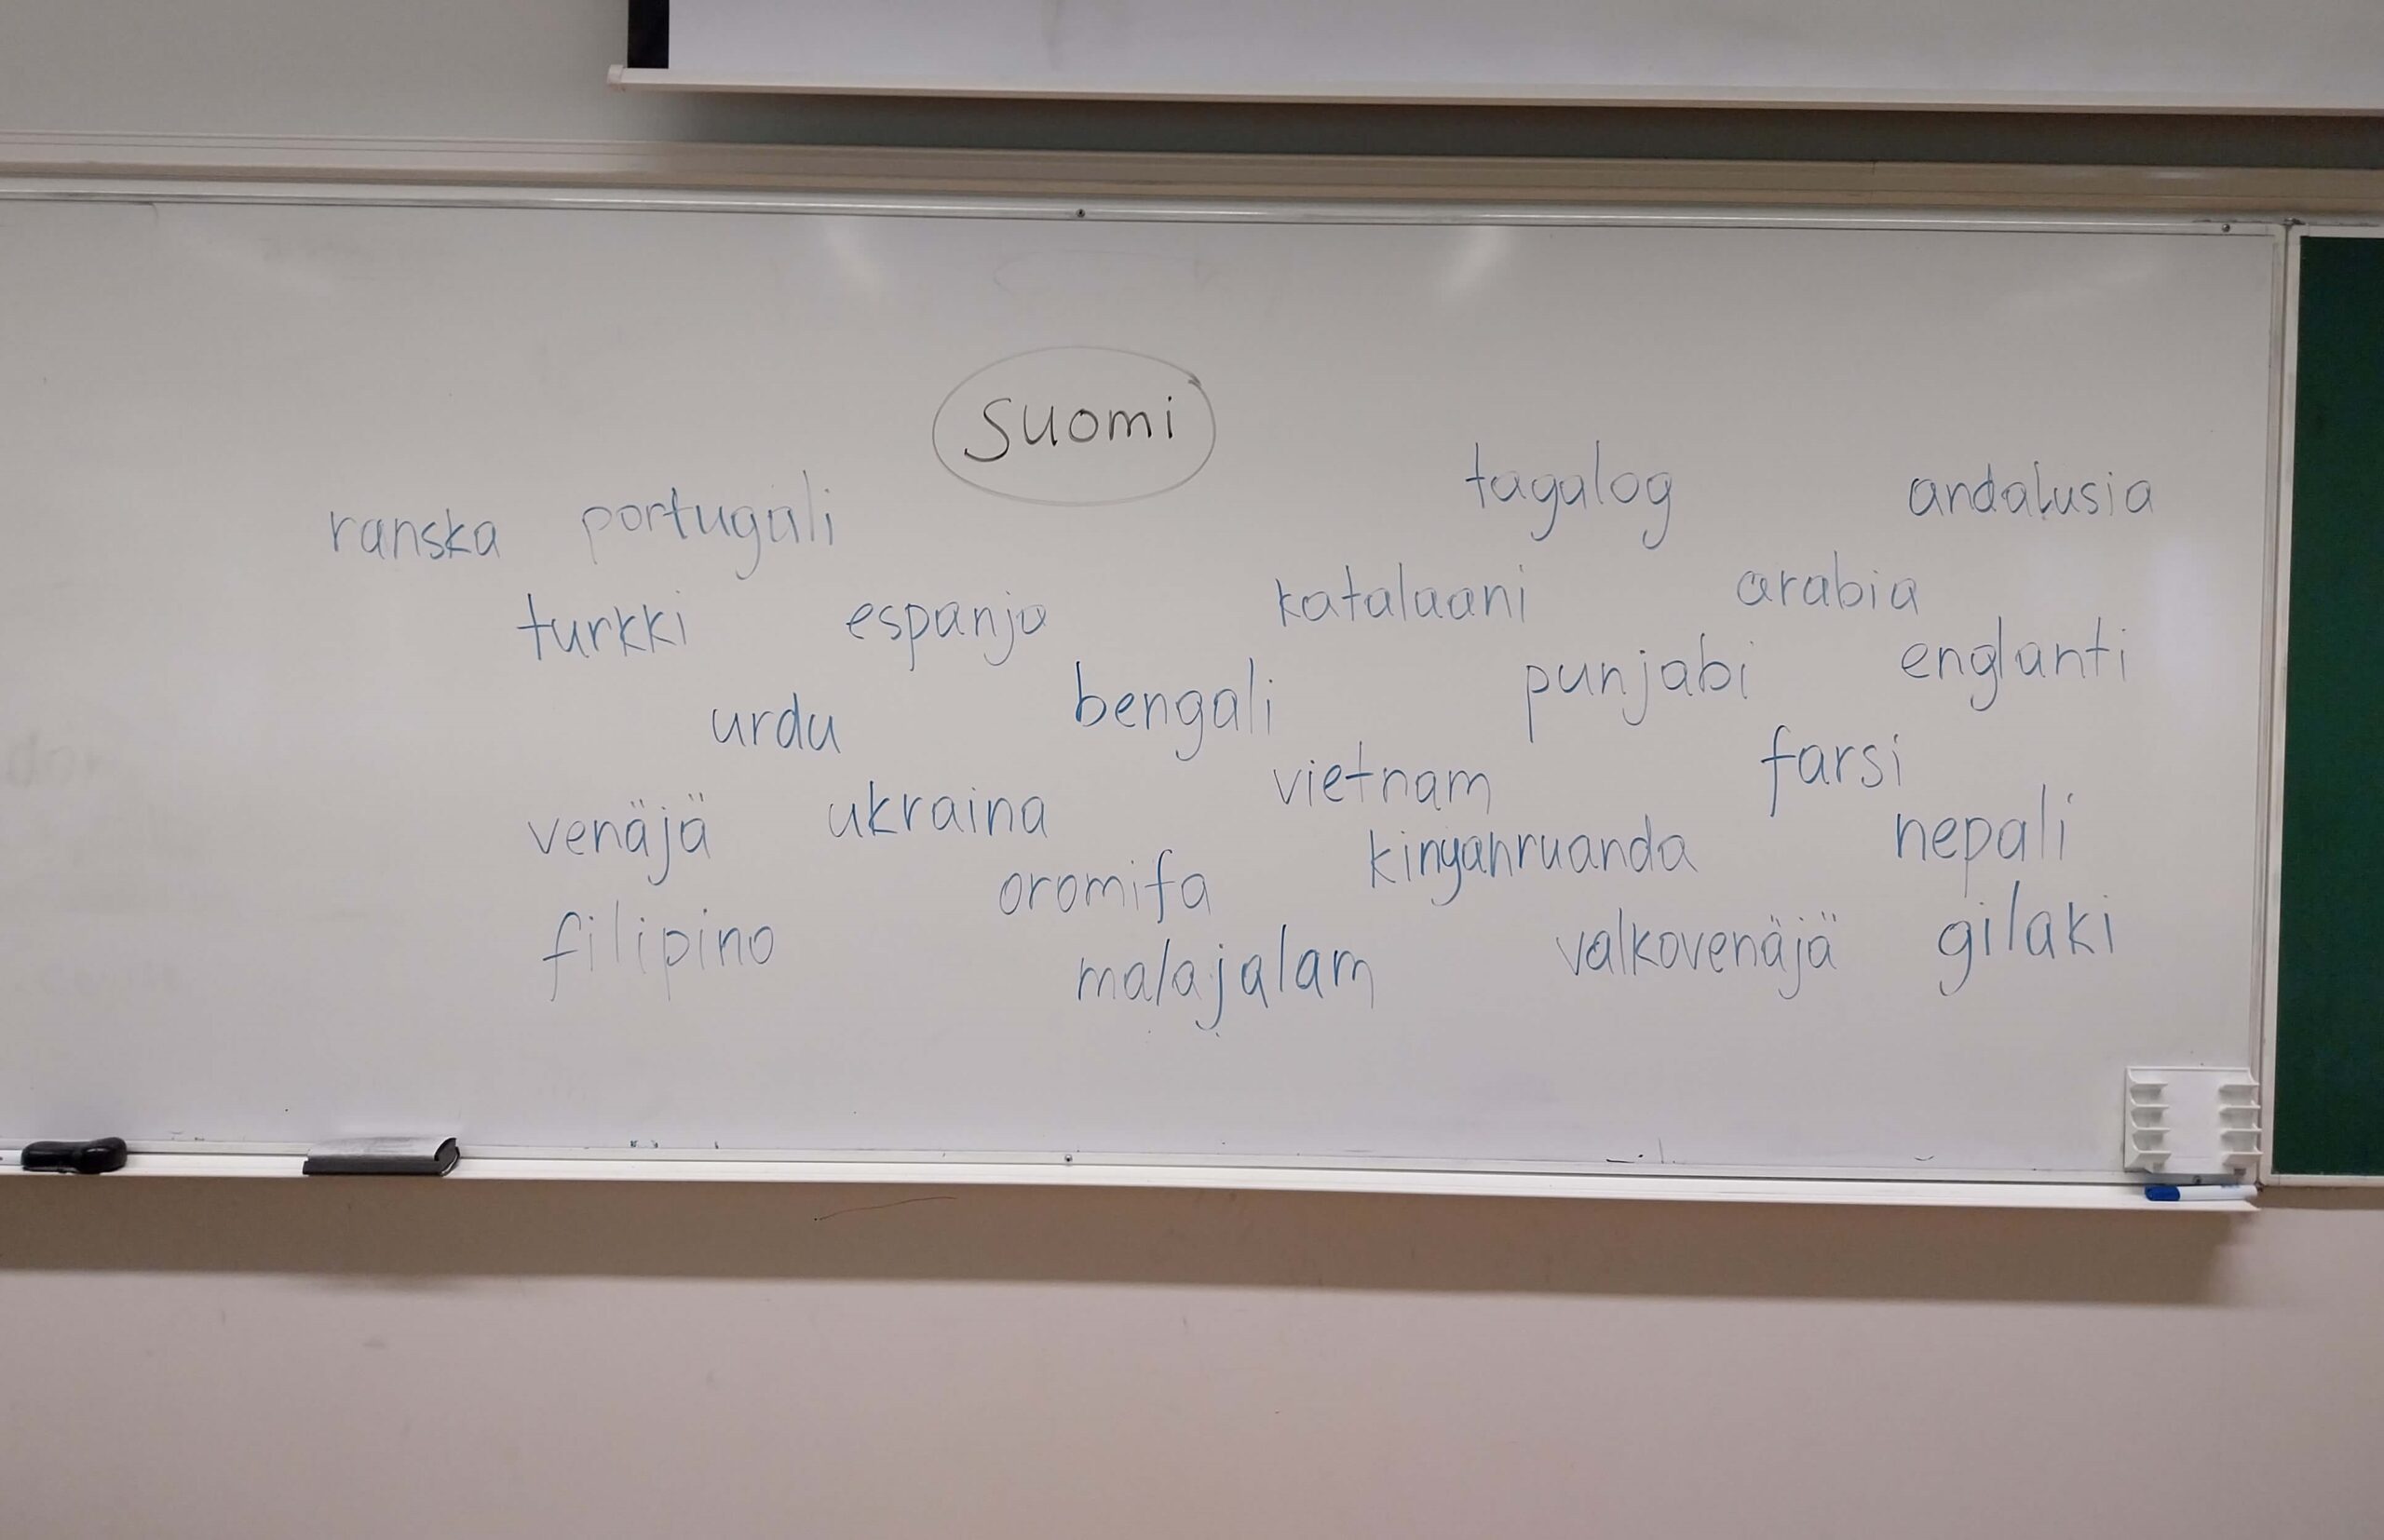 suomi
tagalog andalusia
ranska portugali
turkki espanja katalaani arabia
urdu bengali punjabi englanti
vietnam farsi
venäjä ukraina kinyanruanda nepali
oromifa
filipino malajalam valkovenäjä gilaki